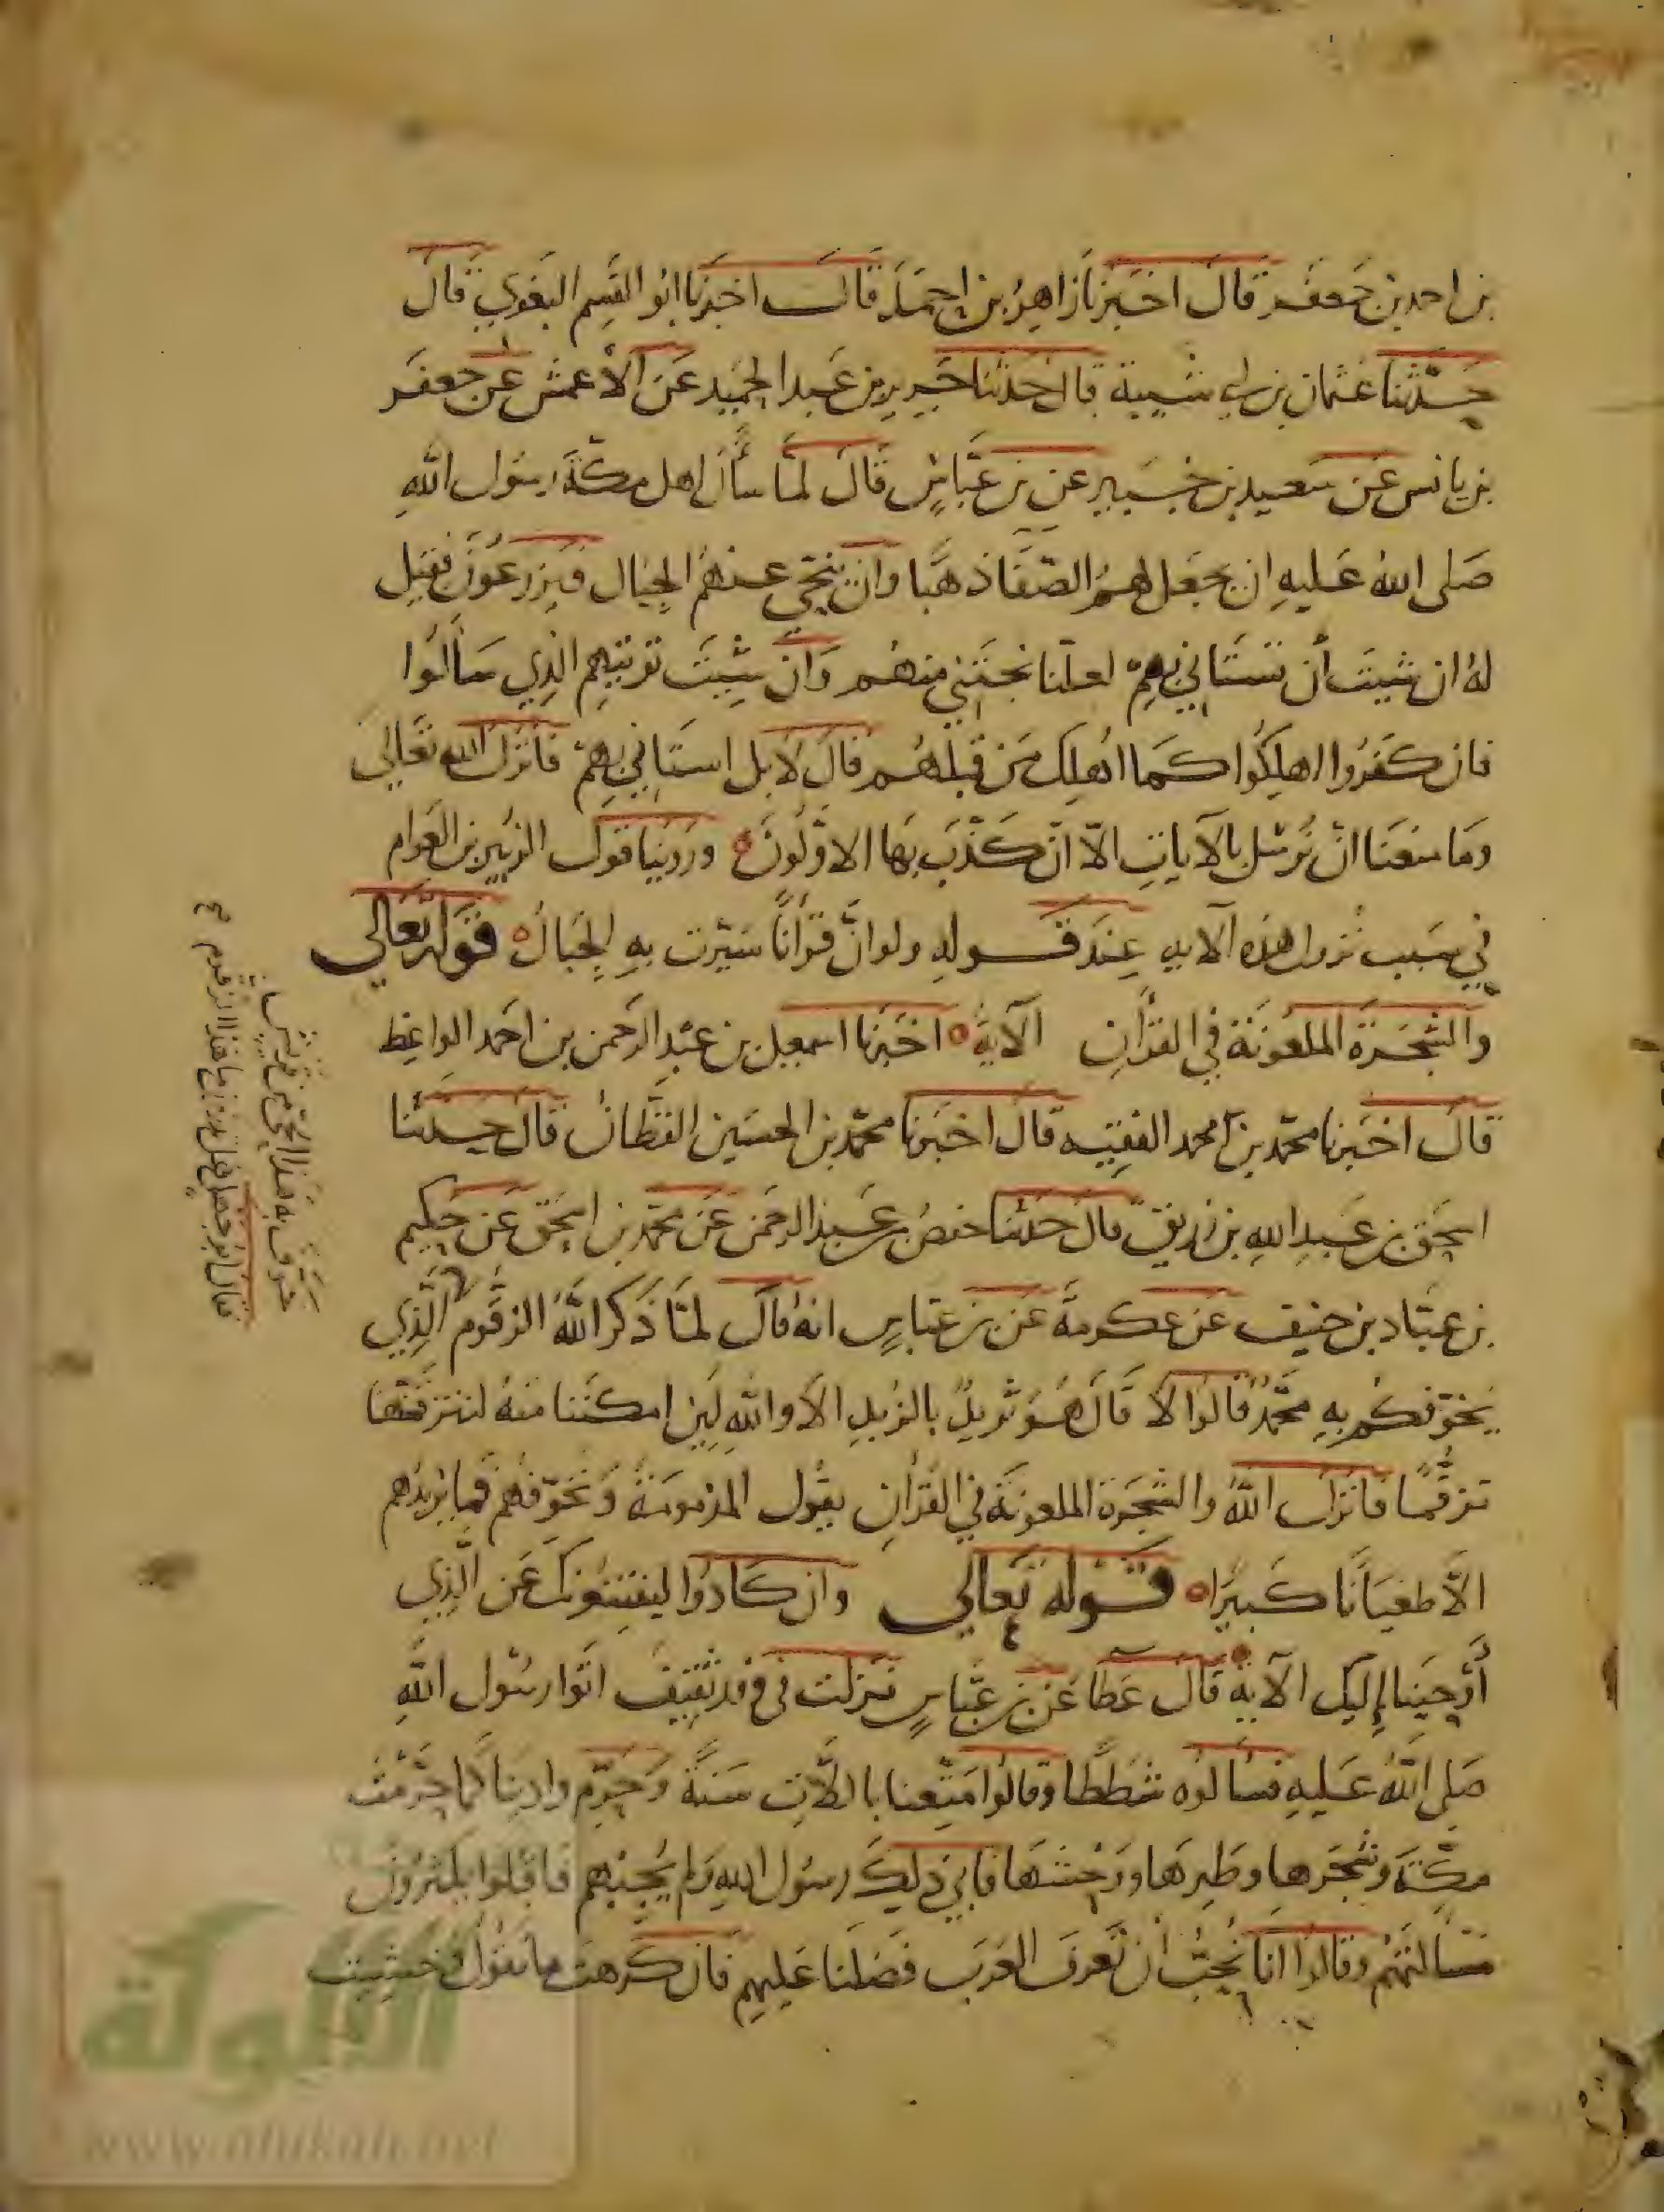 بن احمد بن جَعفَر قال اخبَرنا زاهِرُ بن احمَد قالَ اخبَرنا ابُو القَسِم البَغوي قال
حَدّثنا عثمان بن ابي شيبة قال حدّثنا جَرير بن عَبد الحَمِيد عَن الأعمش عَن جعفَر
بن اياس عَن سَعيد بن جُبَيرٍ عن بن عبّاسٍ قالَ لمّا سأل اهل مكّةَ رسُول اللهِ
صَلى اللهُ عَليهِ ان يجعَل لهم الصّفا ذهَبًا وان ينحّي عنهُم الجِبَال فيزرعُونَ فقيل
لهُ ان شيتَ أن تستَاني بهِمْ لعلّنا نجتَني منهُم وَان شيتَ نوتيهِم الذِي سَالُوا
فان كفرُوا اهلِكُوا كما اُهلِكَ مَن قبلهُم قالَ لَا بل استَاني بِهِمْ فأنزلَ الله تعَالىَ
ومَا منعَنا انْ نُرسل بالآيَاتِ الاّ انْ كَذّبَ بهَا الاوّلُونَ ورَوَينا قولَ الزبير بن العَوام
في سَبب نُزول هذه الآية عِندَ قَولِهِ ولو انّ قُرآنًا سُيّرت بهِ الجبَالُ قوله تعالى
والشّجَرَة الملعُونَة في القرآنِ الآيةُ اخبَرنا اسمعيل بن عَبد الرّحمن بن احمَد الواعِظ
قالَ اخبَرنا محمّد بن محمد الفقيه قالَ اخبَرنا محمّد بن الحسَين القطّانُ قال حَدثنا
اسحَق بن عَبدِ اللهِ بن زريق قال حَدثنا حفصُ بن عَبد الرحمن عَن محمّد بن اسحَق عَن حَكيم
بن عبّاد بن حنيف عَن عكرمةَ عَن بن عبّاسٍ انهُ قالَ لمّا ذكَر اللهُ الزّقّوم الّذِي
يُخوّفكُم بهِ محمّدٌ قالُوا لا قَالَ هُوَ ثريدٌ بالزُبدِ الاَ واللهِ لَئِن امكنَنا منهُ لنتزقّمنّها
تزقّمًا فانزلَ اللهُ والشّجَرة الملعونَة في القُرآنِ يقُول المذمومَة وَنخَوّفهُم فما يزيدُهم
الاّ طغيَانًا كَبيرًا قَوله تَعالى وان كادُوا ليفتنُونكَ عَن الّذِي
أوحَينا إليك الآيةُ قالَ عَطَا عَن بن عبّاسٍ نزلت في وفد ثقيفَ اتَوا رسُول اللهِ
صَلى اللهُ عَليهِ فسَالُوه شططًا وقالُوا متّعنا باللاَّتِ سَنةً وَحَرّم وادِينا كَما حَرّمتَ
مَكّةَ وشجَرها وطَيرهَا ووَحشهَا فابى ذلكَ رسُول اللهِ وَلم يُجبهُم فاقبلوا يكثرُونَ
مَسألتَهُم وقالُوا انا نحبُّ أن تَعرفَ العَرَب فضلَنا عَليهِم فان كَرهتَ ما نقولُ وخشيت
فقال ابو جهل تدرون ما هذا الزقوم صح
خوّف به هَذا الحي من قريش
الألوكة
www.alukah.net